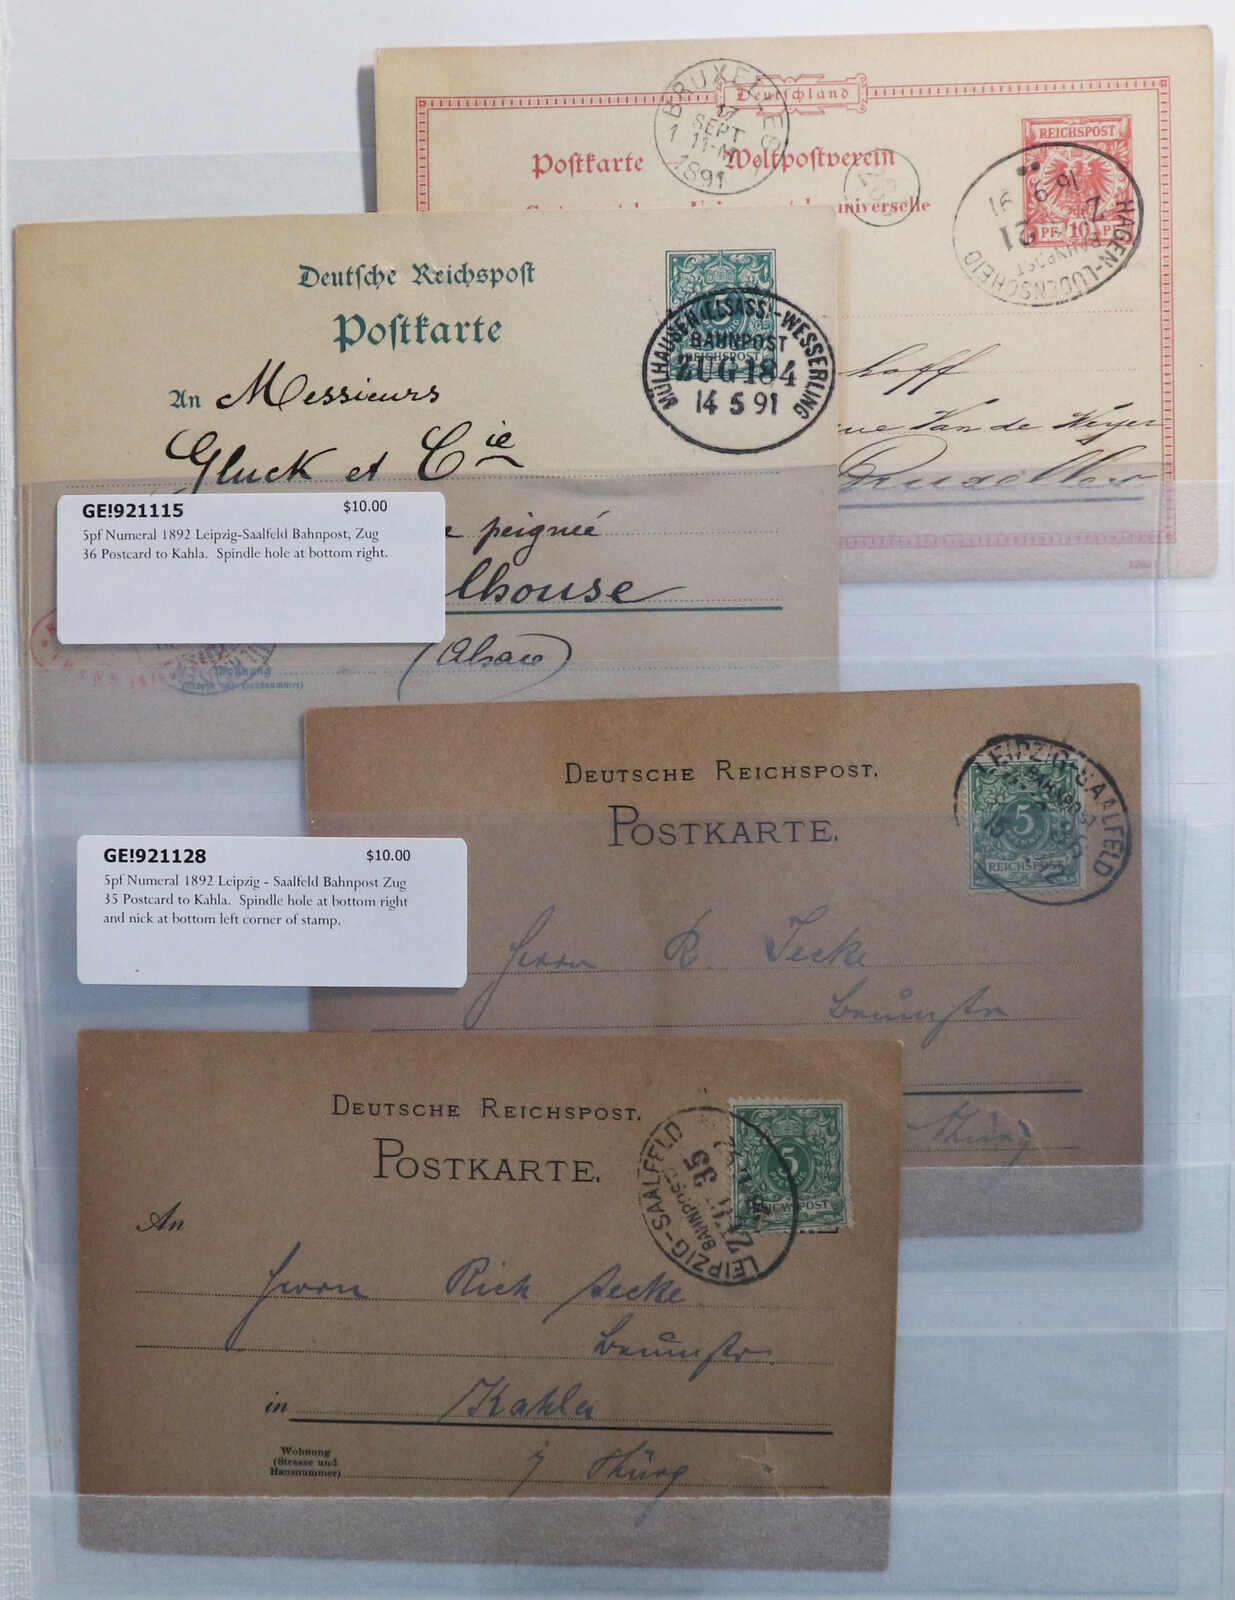 Deutschland
Postkarte Weltpostverein
universelle
REICHSPOST
PF 10 PF
BRUXELLES
17
SEPT
11-M
1891
1
HAGEN-LÜDENSCHEID
BAHNPOST
Z 21
16 9 91
hoff
rue Van de Weyer
Bruxelles
Deutsche Reichspost
Postkarte
5
REICHSPOST
MÜLHAUSEN (ELSASS)-WESSERLING
BAHNPOST
ZUG 184
14 5 91
An Messieurs
Gluck et Cie
peignée
lhouse
(Alsace)
Wohnung
GE!921115 $10.00
5pf Numeral 1892 Leipzig-Saalfeld Bahnpost, Zug
36 Postcard to Kahla. Spindle hole at bottom right.
DEUTSCHE REICHSPOST.
POSTKARTE.
5
REICHSPOST
LEIPZIG-SAALFELD
BAHNPOST
Herrn R. Jecke
Thürg
GE!921128 $10.00
5pf Numeral 1892 Leipzig - Saalfeld Bahnpost Zug
35 Postcard to Kahla. Spindle hole at bottom right
and nick at bottom left corner of stamp.
DEUTSCHE REICHSPOST.
POSTKARTE.
5
REICHSPOST
LEIPZIG-SAALFELD
BAHNPOST
ZUG 35
An
Herrn Rich Jecke
in Kahla
Wohnung
(Strasse und
Hausnummer)
Thürg